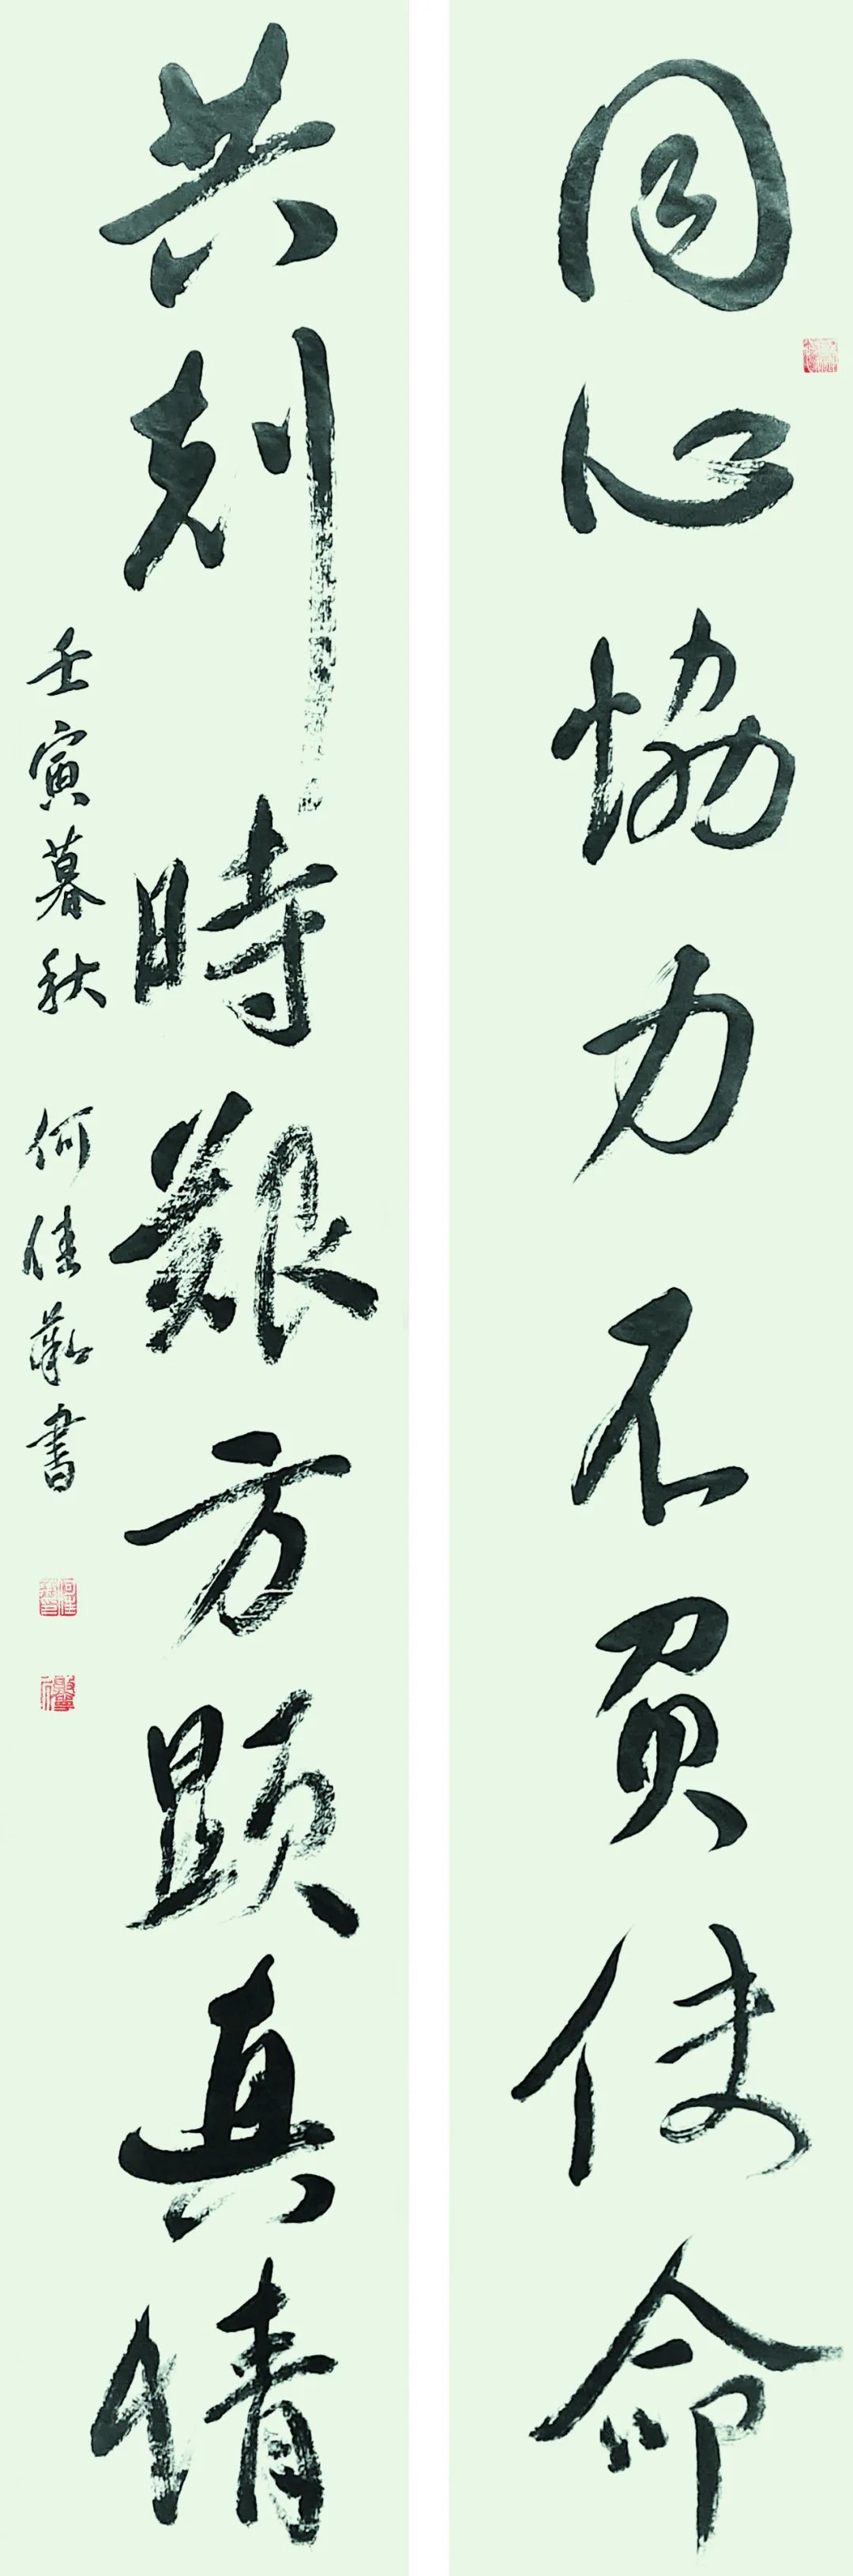 同心協力不負使命
共剋時艱方顯真情
壬寅暮秋 何佳書